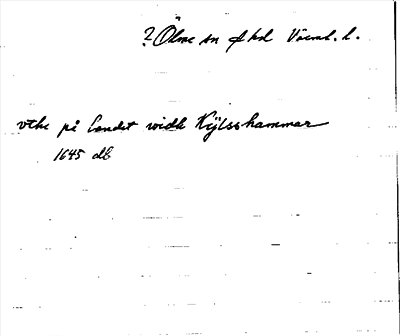 ? Ölme sn o hd Värml. l.
vthe på Landet widh Kijlsshammar
1645 db